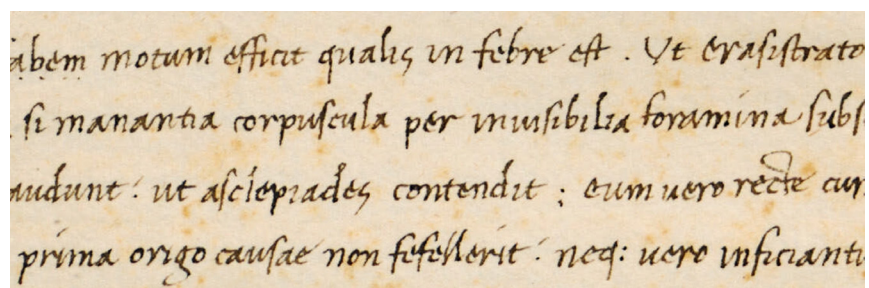 abem motum efficit qualis in febre est . Ut erasistrato
si manantia corpuscula per inuisibilia foramina subs
audunt : ut asclepiades contendit ; eum uero recte cur
prima origo causae non fefellerit : neq: uero inficianti